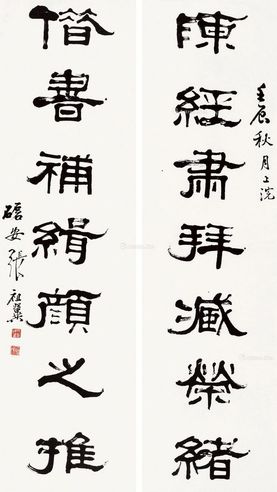 壬辰秋月上浣
陳經肅拜臧榮緒
借書補緝顏之推
安張祖翼